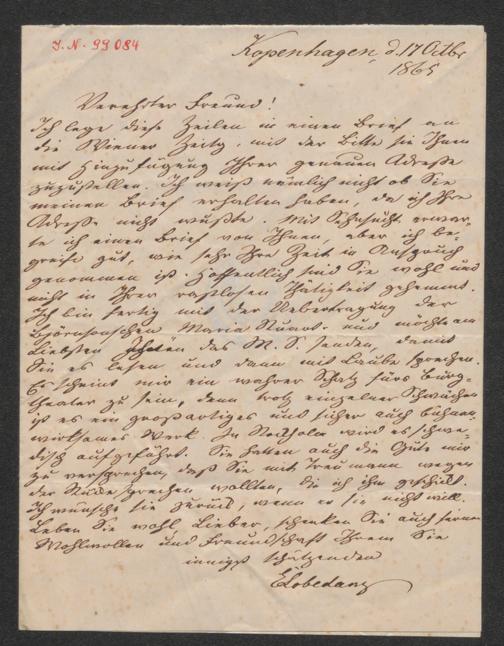 J.N. 99084
Kopenhagen, d. 17 Octbr
1865
Verehrter Freund!
Ich lege diese Zeilen in einen Brief an
die Wiener Zeitg. mit der Bitte sie Ihnen
mit Hinzufügung Ihrer genauen Adresse
zuzustellen. Ich weiß nämlich nicht ob Sie
meinen Brief erhalten haben, da ich Ihre
Adresse nicht wußte. Mit Sehnsucht erwar-
te ich einen Brief von Ihnen, aber ich be-
greife gut, wie sehr Ihre Zeit in Anspruch
genommen ist. Hoffentlich sind Sie wohl und
nicht in Ihrer rastlosen Thätigkeit gehemmt.
Ich bin fertig mit der Uebertragung der
Björnsonschen Maria Stuart und möchte am
liebsten das M. S. senden, damit
Sie es lesen und dann mit Laube sprechen.
Es scheint mir ein wahrer Schatz fürs Burg-
theater zu sein, denn trotz einzelner Schwächen
ist es ein großartiges und sicher auch bühnen-
wirksames Werk. In Stockholm wird es schwe-
disch aufgeführt. Sie hatten auch die Güte mir
zu versprechen, daß Sie mit Treumann wegen
der Stücke sprechen wollten, die ich ihm geschickt.
Ich wünsche sie zurück, wenn er sie nicht will.
Leben Sie wohl Lieber, schenken Sie auch ferner
Wohlwollen und Freundschaft Ihrem Sie
innigst schätzenden
ELobedanz